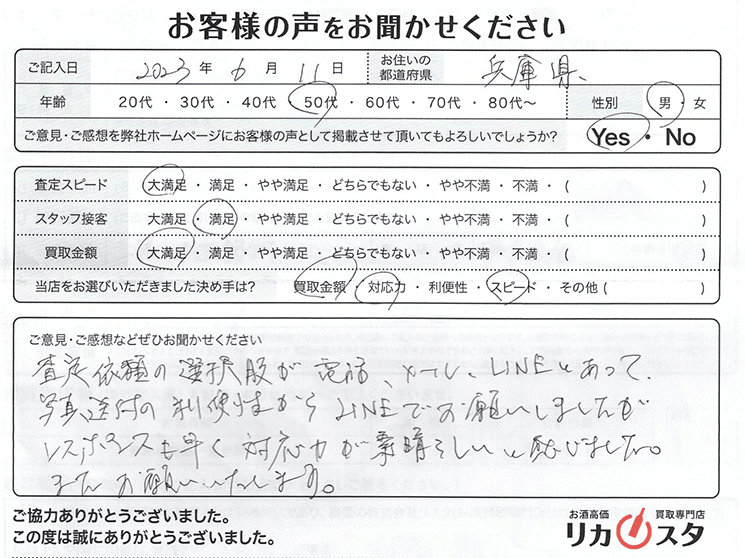 お客様の声をお聞かせください
ご記入日 2023年 6月 11日 お住いの都道府県 兵庫県
年齢 20代・30代・40代・50代・60代・70代・80代〜 性別 男・女
ご意見・ご感想を弊社ホームページにお客様の声として掲載させて頂いてもよろしいでしょうか? Yes・No
査定スピード 大満足・満足・やや満足・どちらでもない・やや不満・不満・( )
スタッフ接客 大満足・満足・やや満足・どちらでもない・やや不満・不満・( )
買取金額 大満足・満足・やや満足・どちらでもない・やや不満・不満・( )
当店をお選びいただきました決め手は? 買取金額・対応力・利便性・スピード・その他( )
ご意見・ご感想などぜひお聞かせください
査定依頼の選択肢が電話、メール、LINEとあって、
写真送付の利便性からLINEでお願いしましたが
レスポンスも早く対応力が素晴らしいと感じました。
またお願いいたします。
ご協力ありがとうございました。
この度は誠にありがとうございました。
お酒高価 買取専門店
リカスタ